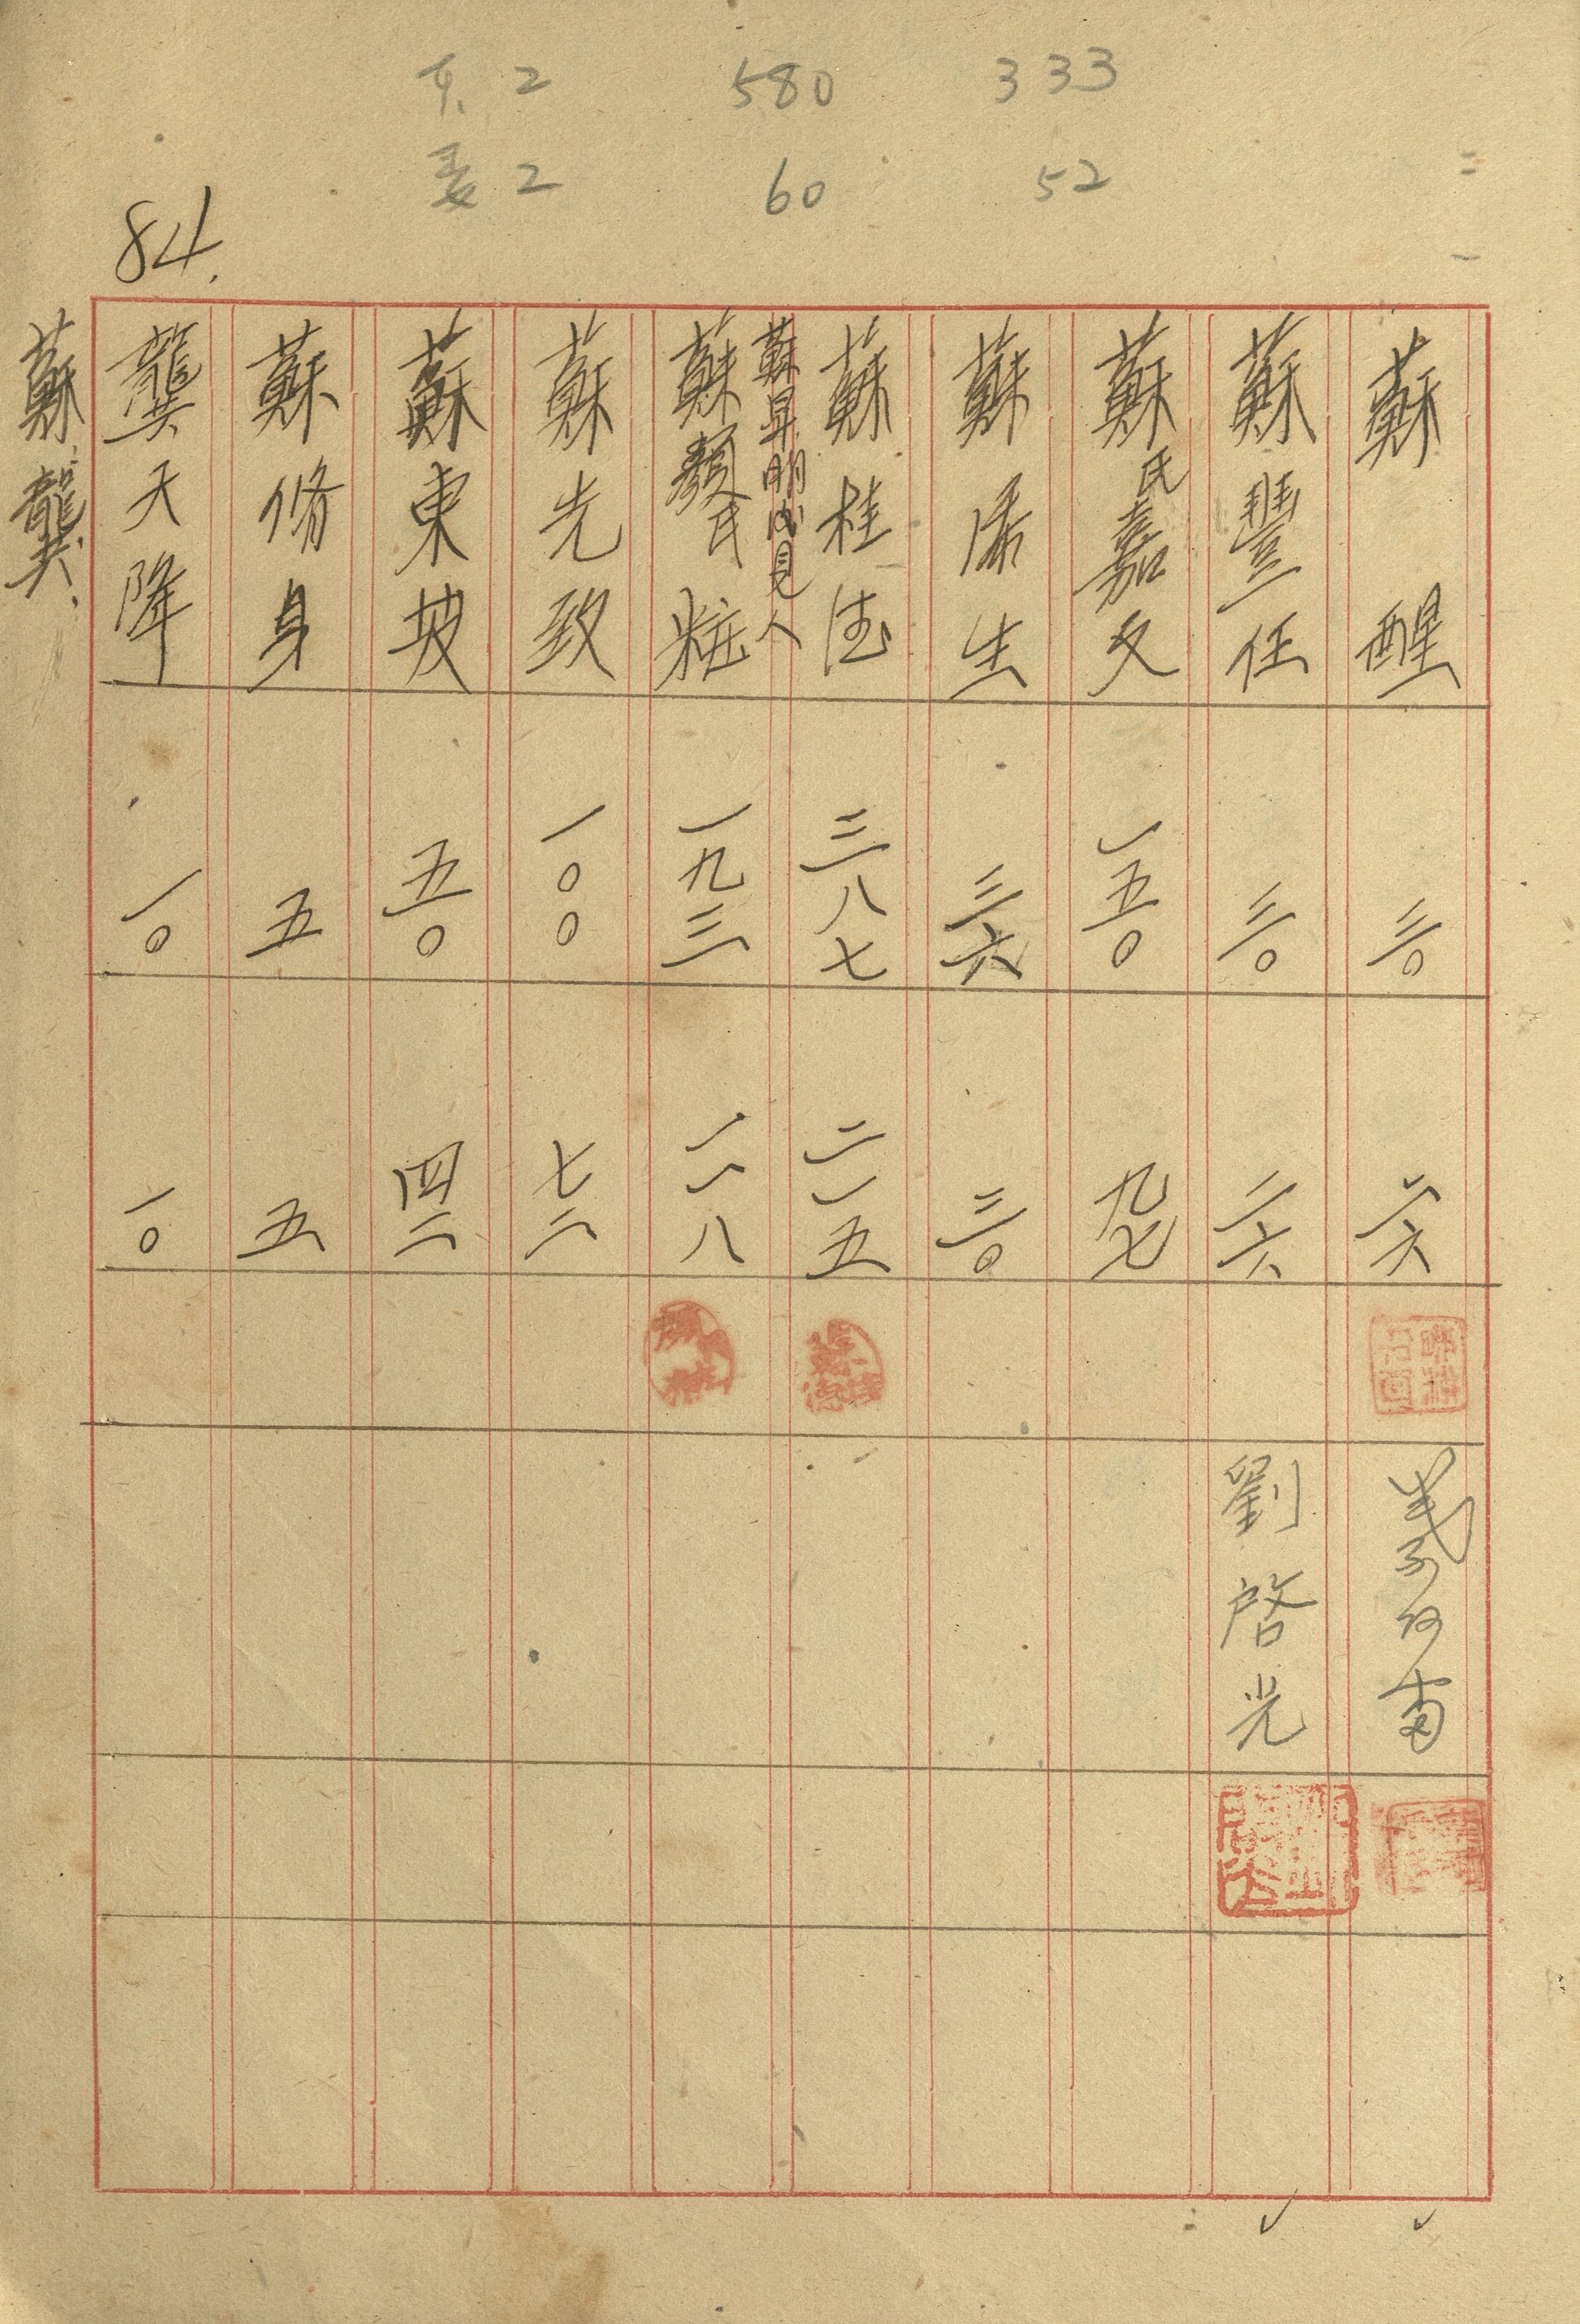 2 580 333
2 60 52
84.
蘇醒 三〇 二六
蘇豐任 三〇 二六 劉啓光
蘇氏嘉文 一五〇 九七
蘇 生 三六 三〇
蘇桂法 三八七 二一五
蘇 明 見人
蘇 氏粧 一九三 一一八
蘇先致 一〇〇 七二
蘇東坡 五〇 四二
蘇脩身 五 五
龔天降 一〇 一〇
蘇、龔、